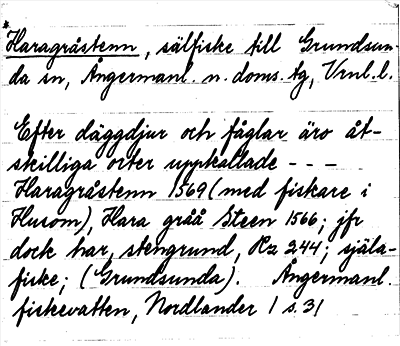 *
Haragråstenn, sälfiske till Grundsun-
da sn, Ångermanl. n. doms. tg, Vrnl. l.
Efter däggdjur och fåglar äro åt-
skilliga orter uppkallade - - -
Haragråstenn 1569 (med fiskare i
Husom), Hara gråå Steen 1566; jfr
dock har, stengrund, Rz 244; själa-
fiske; (Grundsunda). Ångermanl.
fiskevatten, Nordlander 1 s. 31